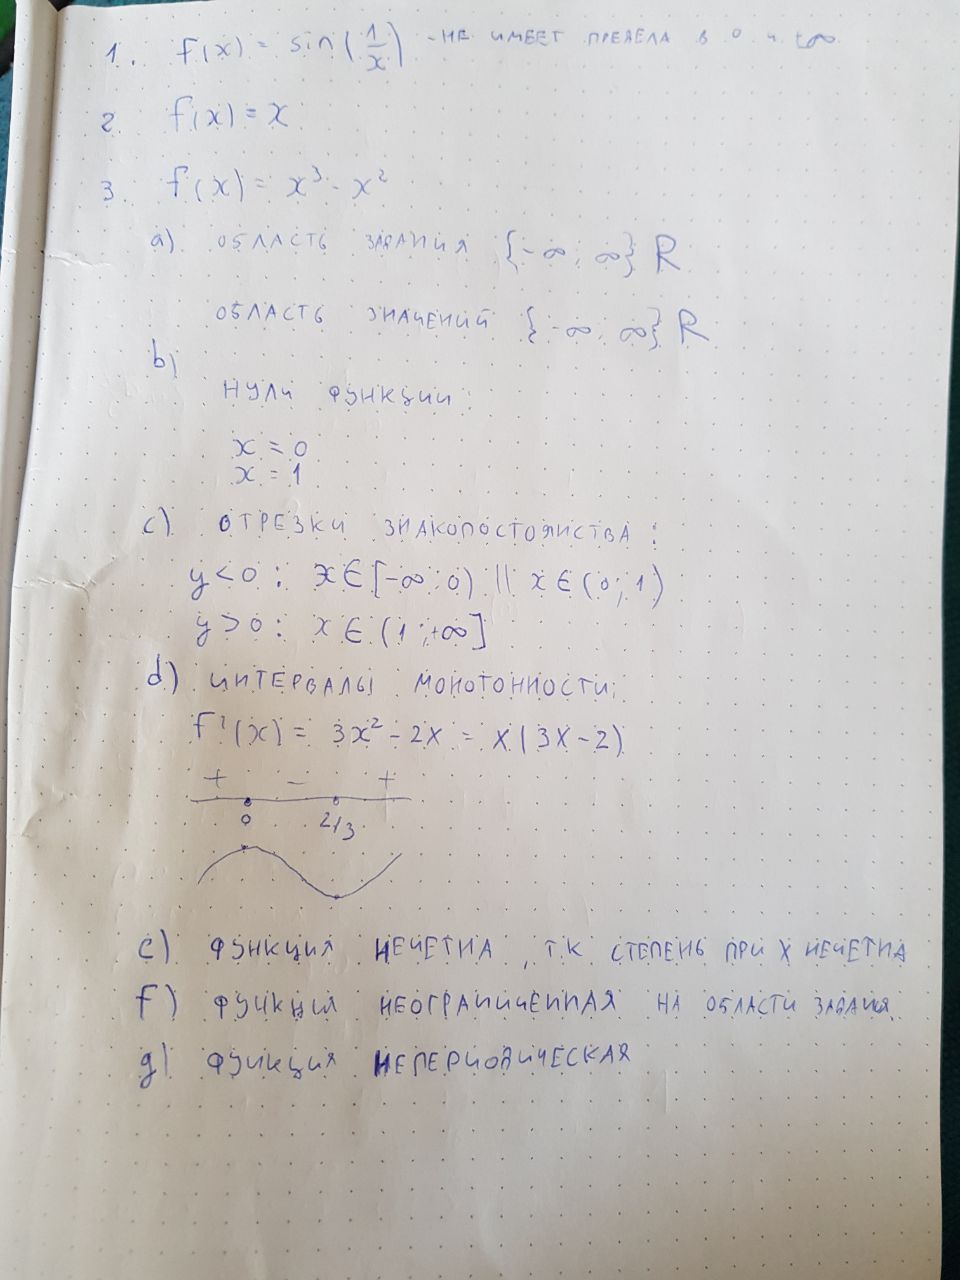 1. f(x) = sin(1/x) - НЕ ИМЕЕТ ПРЕДЕЛА В 0 и +∞
2. f(x) = x
3. f(x) = x³ - x²
a) ОБЛАСТЬ ЗАДАНИЯ {-∞; ∞} R
ОБЛАСТЬ ЗНАЧЕНИЙ {-∞; ∞} R
b)
НУЛИ ФУНКЦИИ:
x = 0
x = 1
c) ОТРЕЗКИ ЗНАКОПОСТОЯНСТВА:
y < 0 : x ∈ [-∞; 0) || x ∈ (0; 1)
y > 0 : x ∈ (1; +∞]
d) ИНТЕРВАЛЫ МОНОТОННОСТИ:
f'(x) = 3x² - 2x = x(3x-2)
+ - +
0 2/3
e) ФУНКЦИЯ НЕЧЕТНА, Т.К СТЕПЕНЬ ПРИ X НЕЧЕТНА
f) ФУНКЦИЯ НЕОГРАНИЧЕННАЯ НА ОБЛАСТИ
g) ФУНКЦИЯ НЕПЕРИОДИЧЕСКАЯ